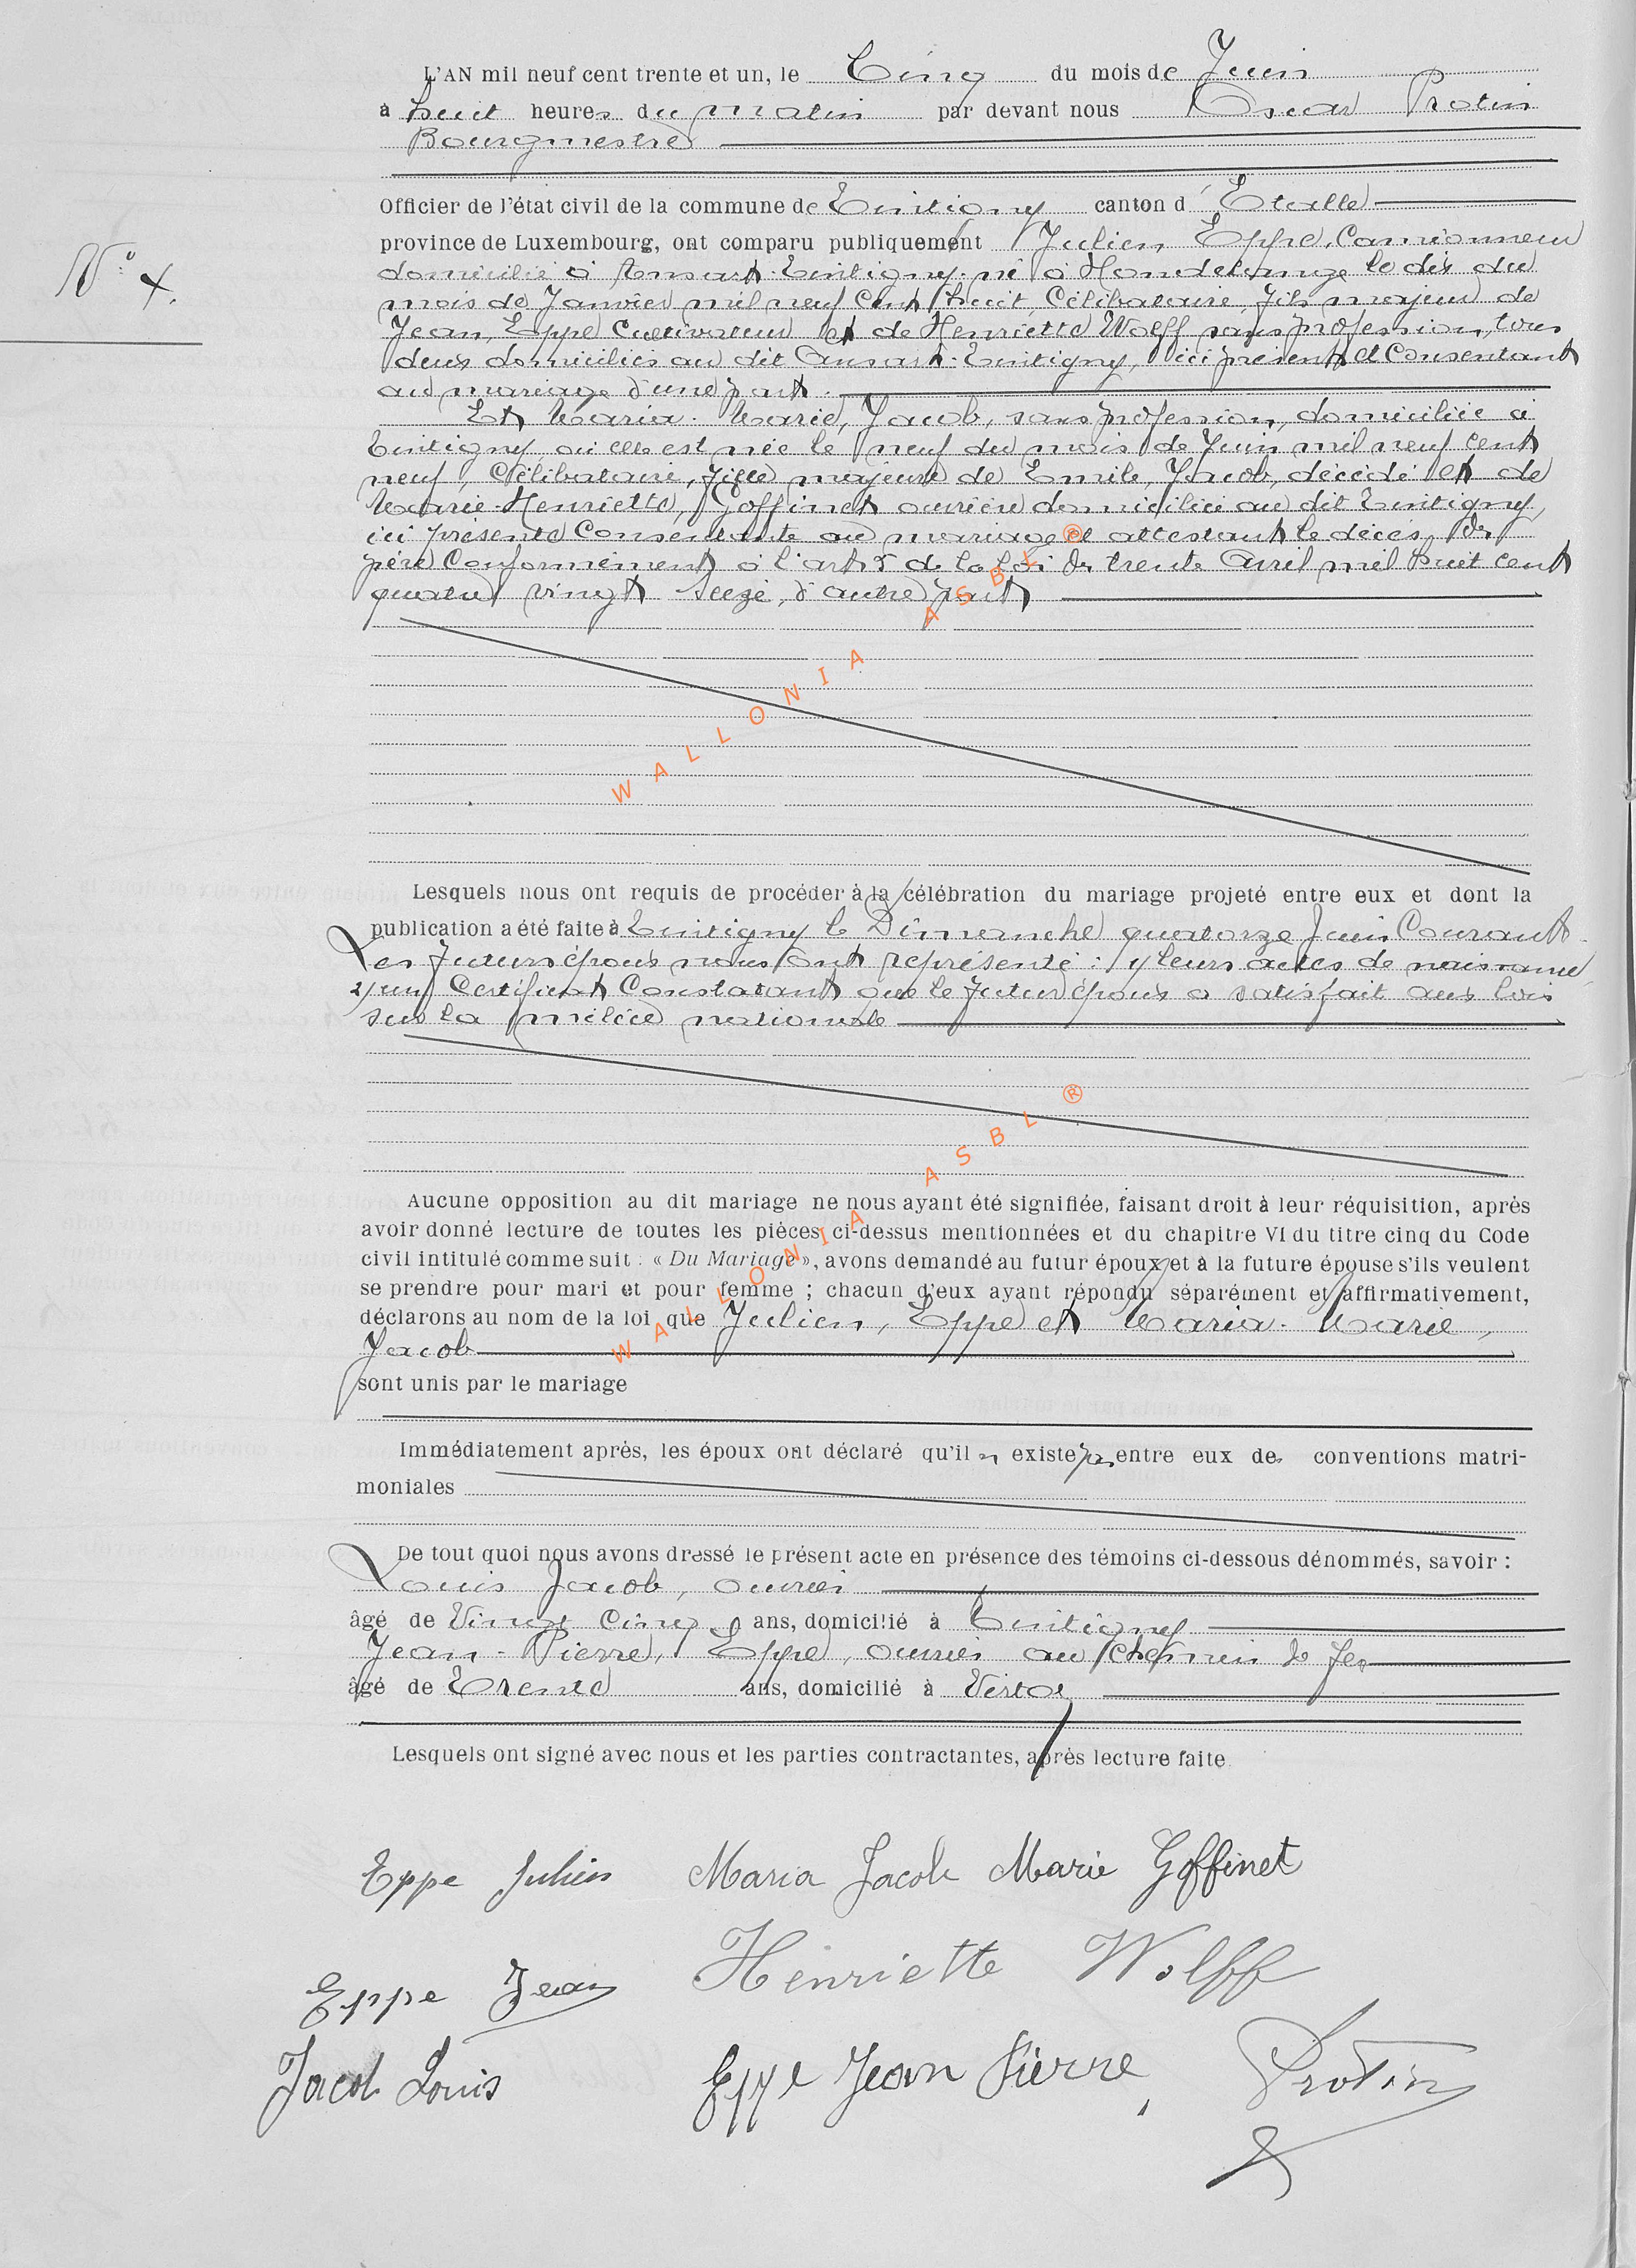 L'AN mil neuf cent trente et un, le Cinq du mois de Juin
à huit heures du matin par devant nous Oscar Protin
Bourgmestre
Officier de l'état civil de la commune de Tintigny canton d'Etalle
province de Luxembourg, ont comparu publiquement Julien, Eppe, Camionneur
N° 4.
domicilié à Ansart-Tintigny, né à Hondelange le dix du
mois de Janvier mil neuf cent huit, Célibataire, fils majeur de
Jean, Eppe Cultivateur et de Henriette Wolff sans profession, tous
deux domiciliés au dit Ansart-Tintigny, ici présent et Consentant
au mariage d'une part.
Et Maria-Marie, Jacob, sans profession, domiciliée à
Tintigny où elle est née le neuf du mois de Juin mil neuf cent
neuf, Célibataire, fille majeure de Emile, Jacob, décédé et de
Marie-Henriette, Goffinet ouvrière domiciliée au dit Tintigny,
ici présente Consentante au mariage et attestant le décès du
père Conformément à l'art 5 de la loi du trente Avril mil huit cent
quatre vingt seize, d'autre part
WALLONIA ASBL ®
Lesquels nous ont requis de procéder à la célébration du mariage projeté entre eux et dont la
publication a été faite à Tintigny le Dimanche quatorze Juin Courant.
Les futurs époux nous ont représenté : 1/ leurs actes de naissance
2/ un Certificat Constatant que le futur époux a satisfait aux lois
sur la milice nationale
WALLONIA ASBL ®
Aucune opposition au dit mariage ne nous ayant été signifiée, faisant droit à leur réquisition, après
avoir donné lecture de toutes les pièces ci-dessus mentionnées et du chapitre VI du titre cinq du Code
civil intitulé comme suit : « Du Mariage », avons demandé au futur époux et à la future épouse s'ils veulent
se prendre pour mari et pour femme ; chacun d'eux ayant répondu séparément et affirmativement,
déclarons au nom de la loi que Julien, Eppe et Maria-Marie,
Jacob
sont unis par le mariage
Immédiatement après, les époux ont déclaré qu'il n existe pas entre eux de conventions matri-
moniales
De tout quoi nous avons dressé le présent acte en présence des témoins ci-dessous dénommés, savoir :
Louis Jacob, ouvrier
âgé de Vingt Cinq ans, domicilié à Tintigny
Jean-Pierre, Eppe, ouvrier au chemin de fer
âgé de Trente ans, domicilié à Virton
Lesquels ont signé avec nous et les parties contractantes, après lecture faite
Eppe Julien Maria Jacob Marie Goffinet
Eppe Jean Henriette Wolff
Jacob Louis Eppe Jean Pierre, Protin